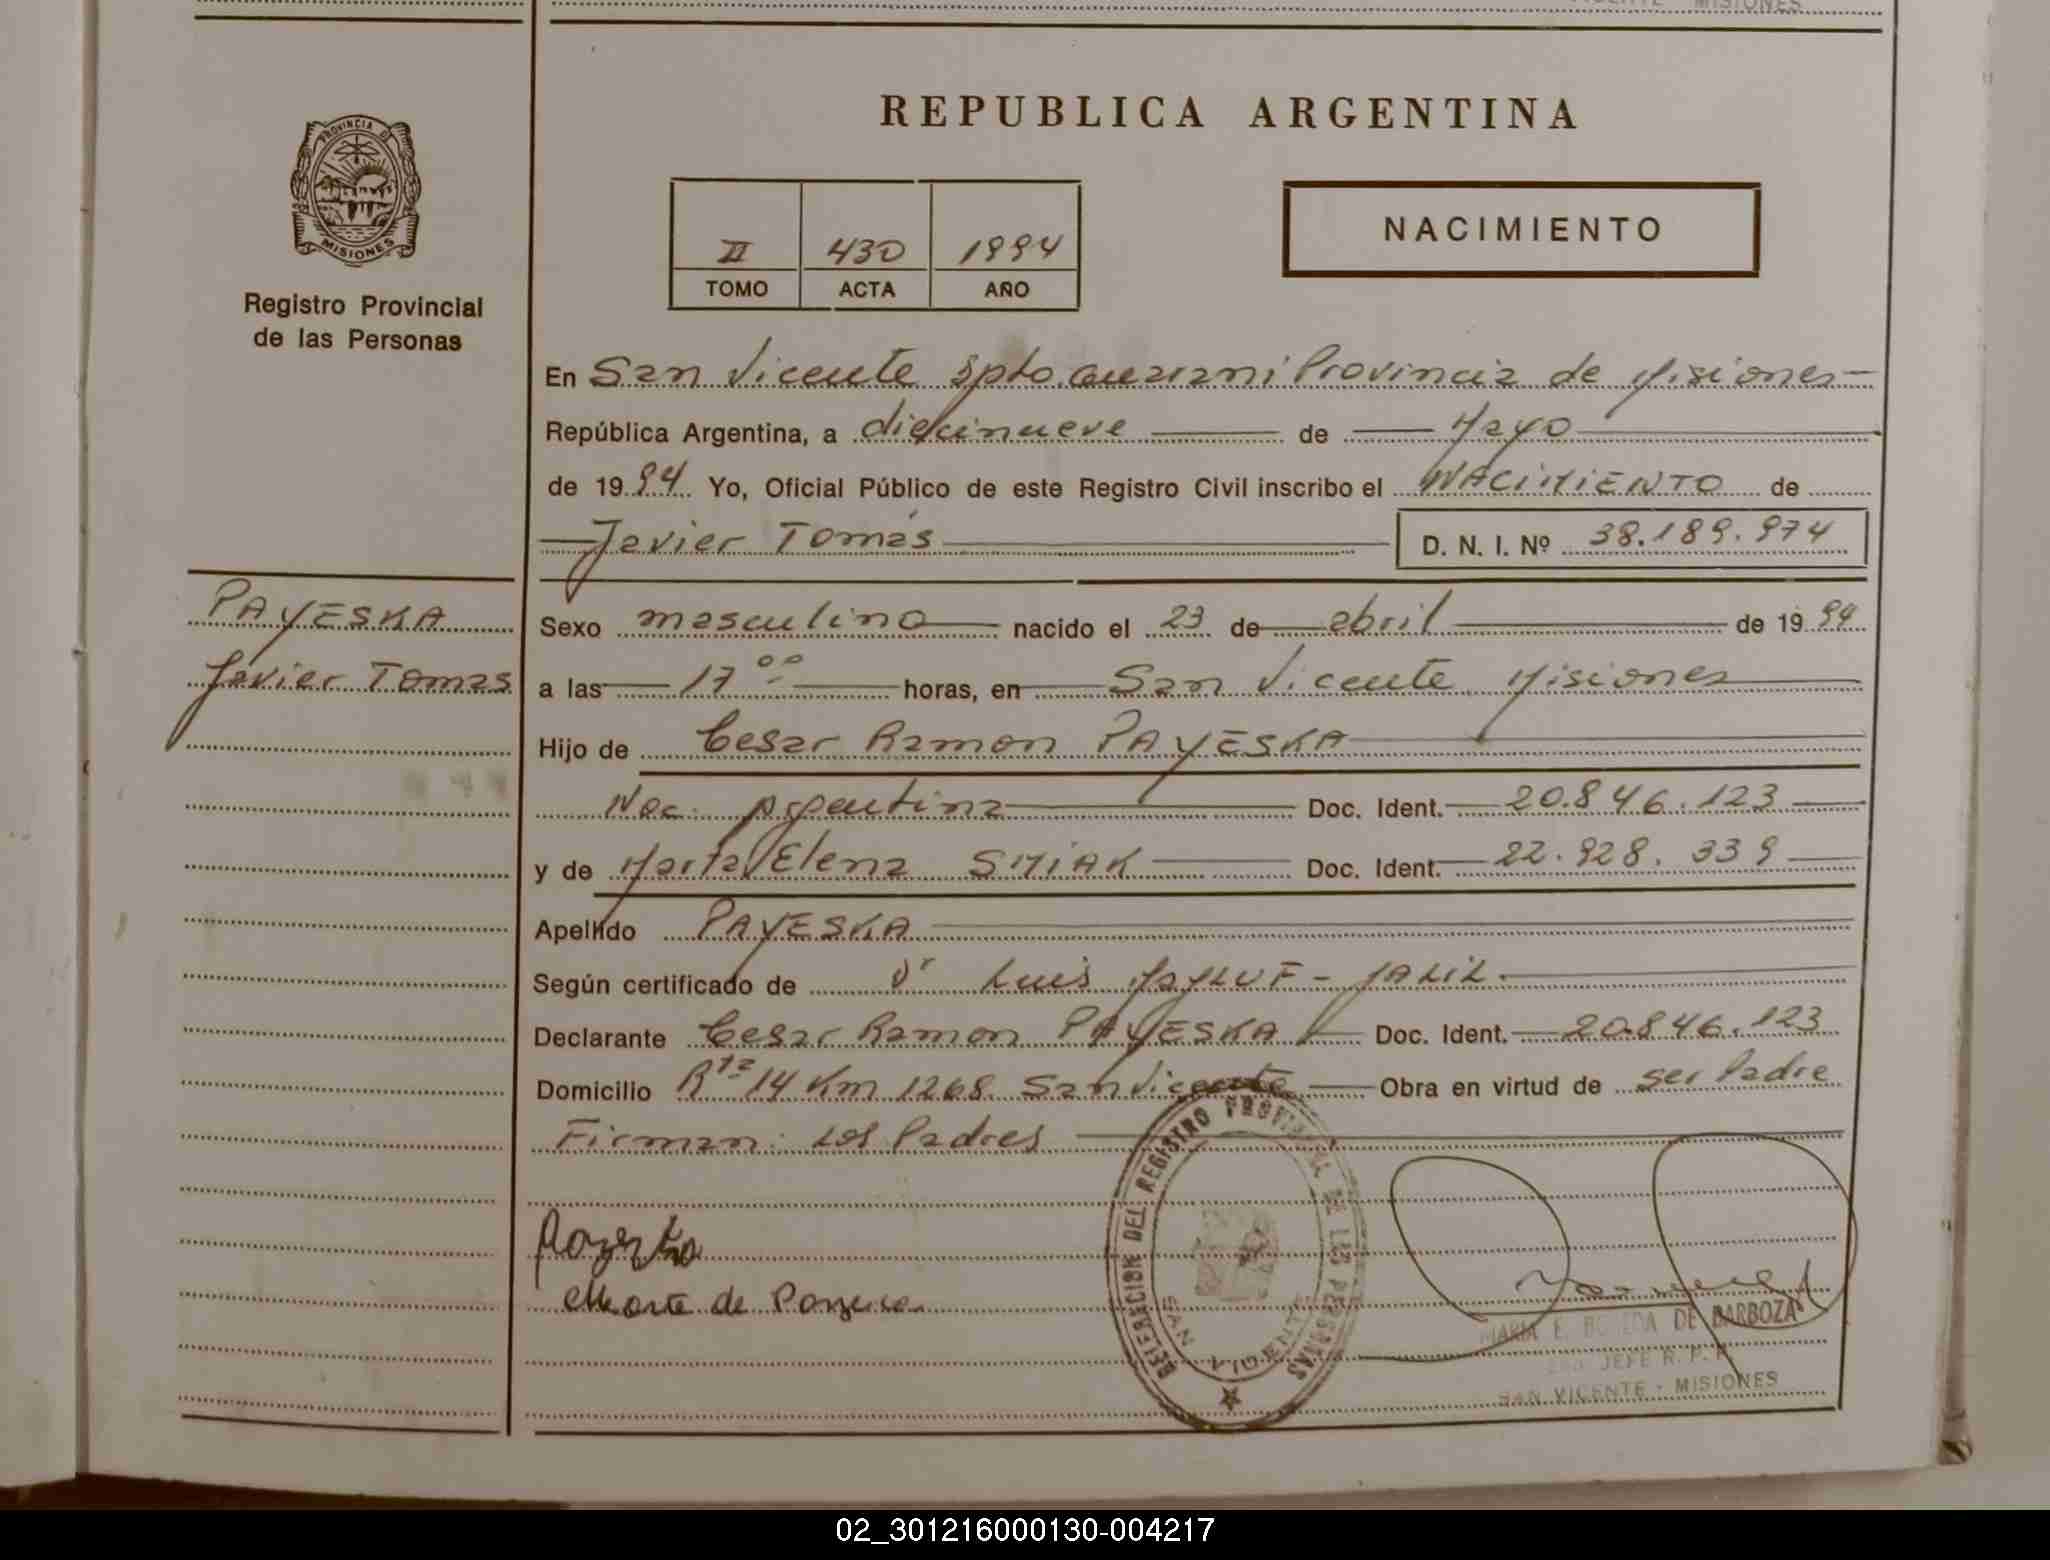 MISIONES
REPUBLICA ARGENTINA
PROVINCIA DE
MISIONES
Registro Provincial
de las Personas
II 430 1994
TOMO ACTA AÑO
NACIMIENTO
En San Vicente Dpto. Guarani Provincia de Misiones
República Argentina, a diecinueve de Mayo
de 1994 Yo, Oficial Público de este Registro Civil inscribo el NACIMIENTO de
Javier Tomás D. N. I. Nº 38.189.974
PAYESKA
Javier Tomas
Sexo masculino nacido el 23 de abril de 1994
a las 17 00 horas, en San Vicente Misiones
Hijo de Cesar Ramon PAYESKA
Nac. Argentina Doc. Ident. 20.846.123
y de Marta Elena SMIAK Doc. Ident. 22.928.339
Apellido PAYESKA
Según certificado de Dr Luis JALIL.
Declarante Cesar Ramon PAYESKA Doc. Ident. 20.846.123
Domicilio Rta 14 Km 1268 San Vicente Obra en virtud de ser Padre
Firman: Los Padres
Marta de
DELEGACION DEL REGISTRO PROVINCIAL DE LAS PERSONAS
SAN VICENTE
MARIA E. DE BARBOZA
JEFE R. P. P.
SAN VICENTE - MISIONES
02_301216000130-004217